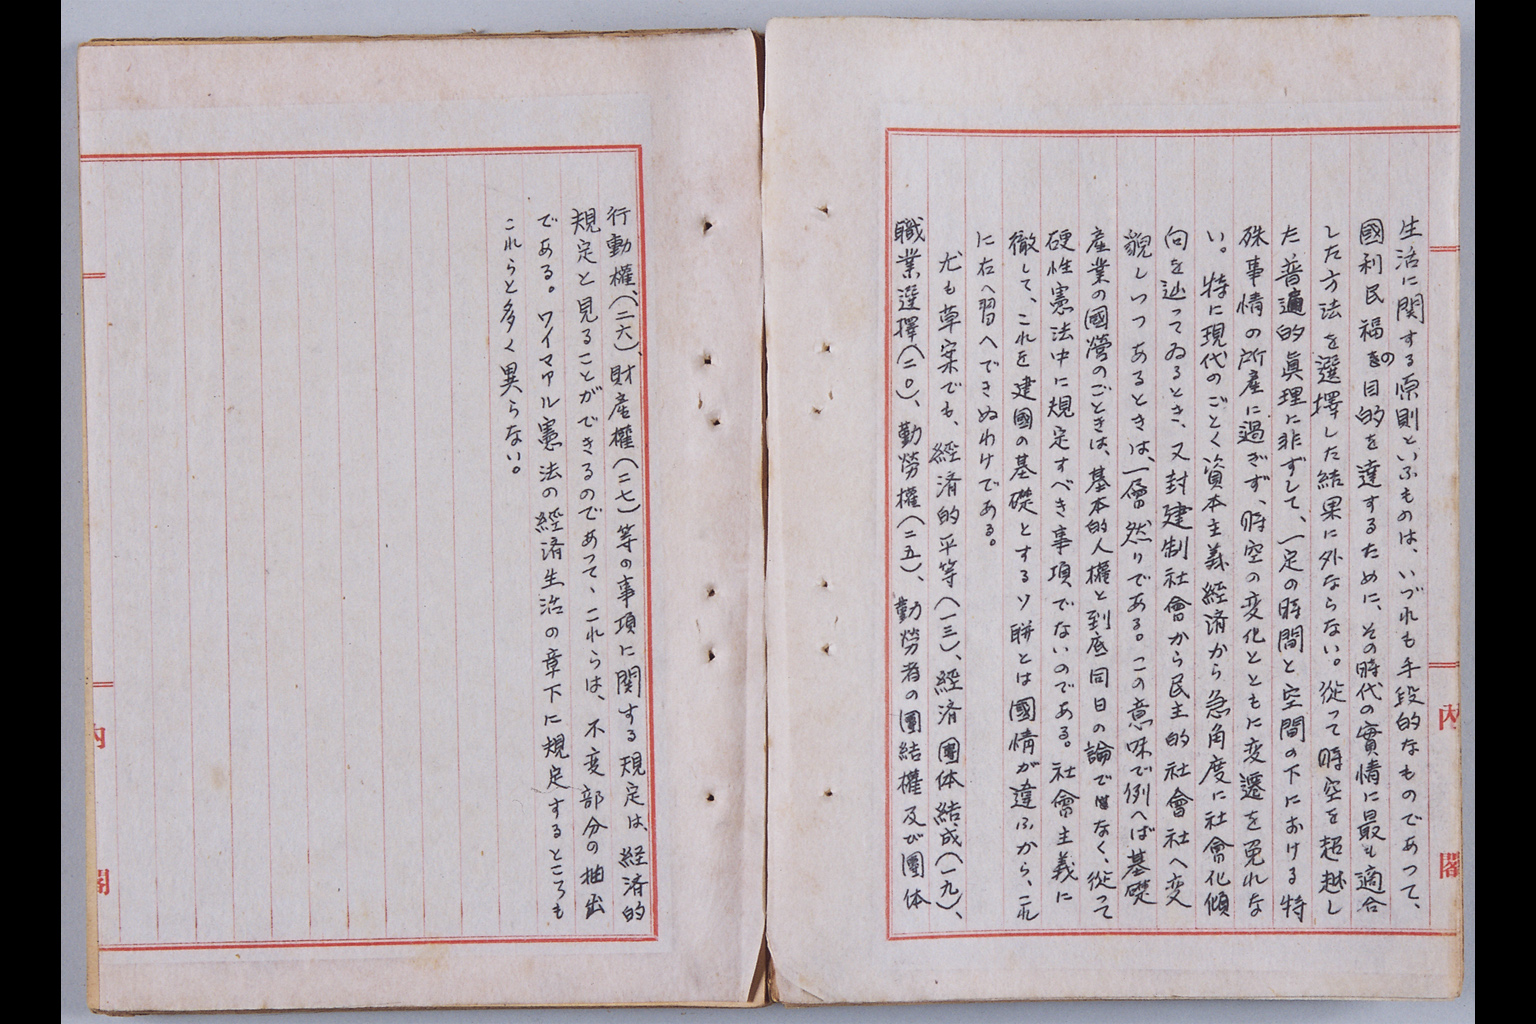 生活に関する原則といふものは、いづれも手段的なものであつて、
國利民福の目的を達するために、その時代の實情に最も適合
した方法を選擇した結果に外ならない。従つて時空を超越し
た普遍的眞理に非ずして、一定の時間と空間の下における特
殊事情の所産に過ぎず、時空の変化とともに変遷を免れな
い。特に現代のごとく資本主義経済から急角度に社會化傾
向を辿つてゐるとき、又封建制社會から民主的社會社へ変
貌しつつあるときは、一層然りである。この意味で例へば基礎
産業の國營のごときは、基本的人權と到底同日の論ではなく、従つて
硬性憲法中に規定すべき事項でないのである。社會主義に
徹して、これを建國の基礎とするソ聯とは國情が違ふから、これ
に右へ習へできぬわけである。
尤も草案でも、経済的平等（一三）、経済團体結成（一九）、
職業選擇（二〇）、勤勞權（二五）、勤勞者の團結權及び團体
行動權（二六）、財産權（二七）等の事項に関する規定は、経済的
規定と見ることができるのであつて、これらは、不変部分の抽出
である。ワイマアル憲法の経済生活の章下に規定するところも
これらと多く異らない。
内
閣
内
閣